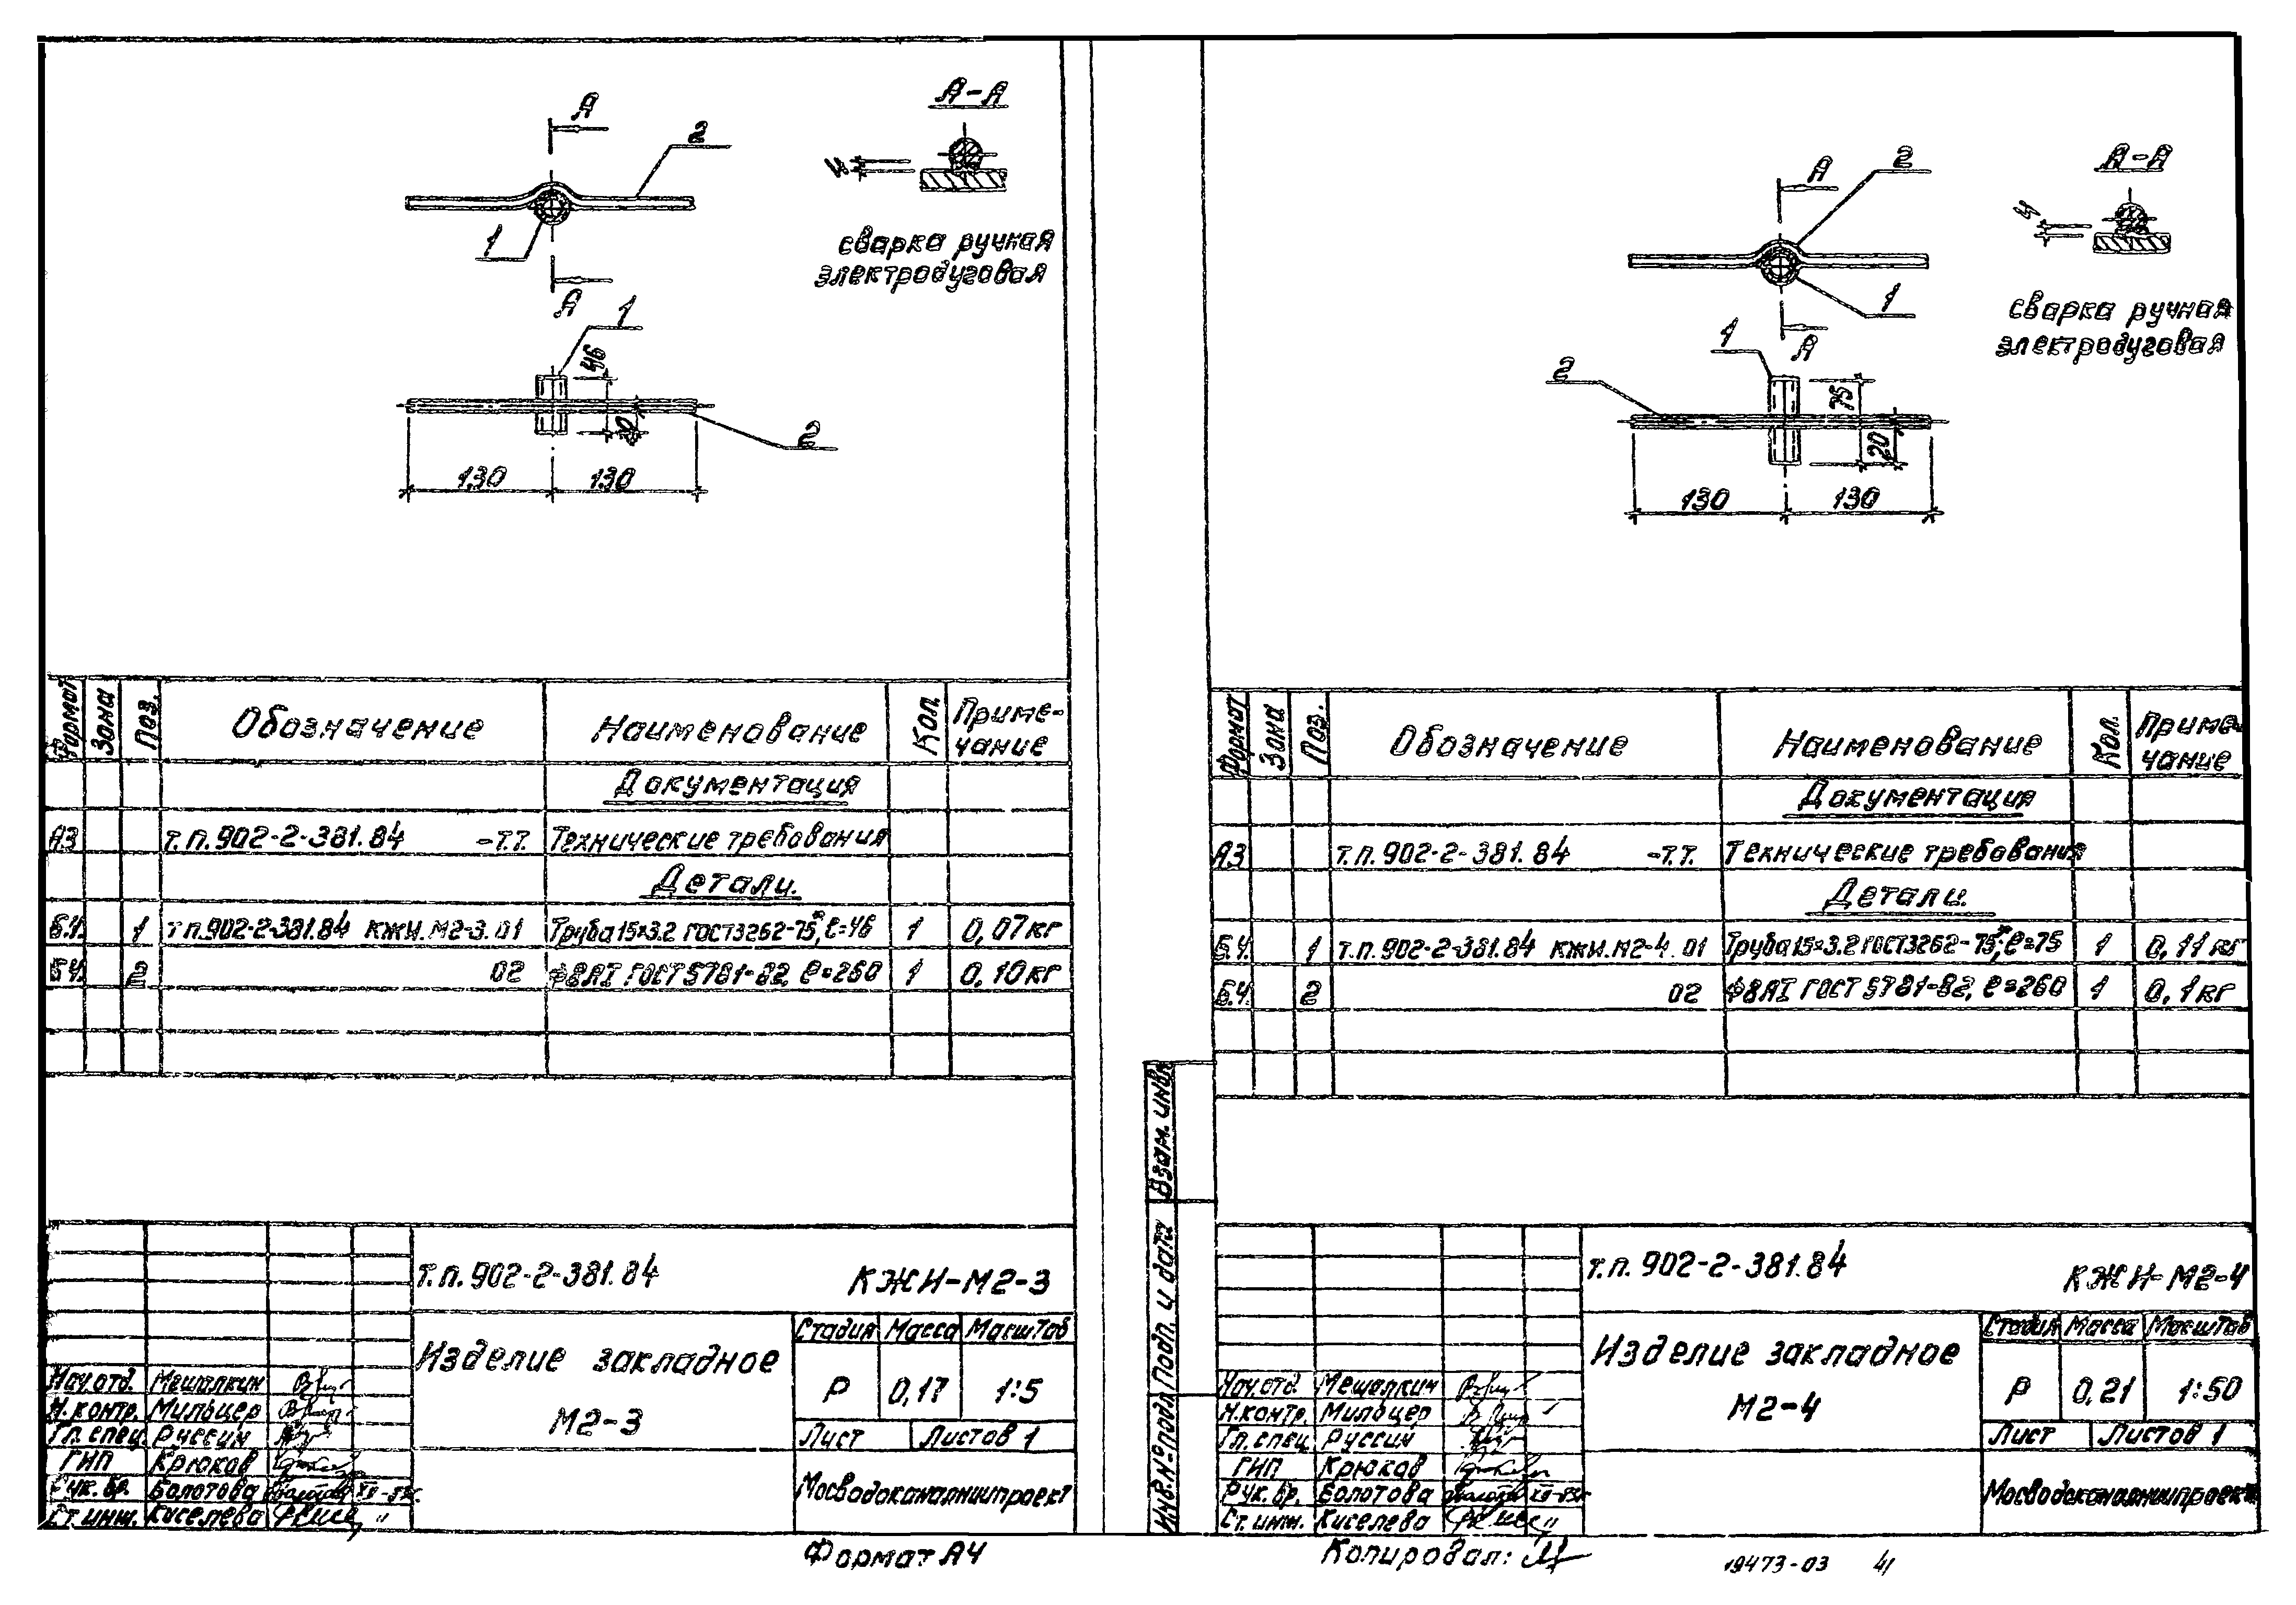 А
2
1
А
А-А
4
сварка ручная
электродуговая
1
46
20
2
130
130
Формат
Зона
Поз.
Обозначение
Наименование
Кол.
Приме-
чание
Документация
А3 т.п.902-2-381.84 -Т.Т. Технические требования
Детали.
Б.Ч. 1 т.п.902-2-381.84 КЖИ.М2-3.01 Труба 15×3.2 ГОСТ3262-75*, ℓ=46 1 0,07кг
Б.Ч. 2 02 ф8АI ГОСТ 5781-82, ℓ=260 1 0,10кг
т.п.902-2-381.84 КЖИ-М2-3
Изделие закладное
М2-3
Стадия Масса Масштаб
Р 0,17 1:5
Лист Листов 1
Мосводоканалниипроект
Нач.отд. Мешалкин
Н.контр. Мильцер
Гл.спец. Руссин
ГИП Крюков
Рук.бр. Болотова
Ст.инж. Киселева
Формат А4
А
2
1
А
А-А
4
сварка ручная
электродуговая
1
2
75
20
130
130
Формат
Зона
Поз.
Обозначение
Наименование
Кол.
Приме-
чание
Документация
А3 т.п.902-2-381.84 -Т.Т. Технические требования
Детали.
Б.Ч. 1 т.п.902-2-381.84 КЖИ.М2-4.01 Труба 15×3.2 ГОСТ3262-75*, ℓ=75 1 0,11кг
Б.Ч. 2 02 ф8АI ГОСТ 5781-82, ℓ=260 1 0,1кг
Взам. инв.
Подп. и дата
Инв.№подл.
т.п.902-2-381.84 КЖИ-М2-4
Изделие закладное
М2-4
Стадия Масса Масштаб
Р 0,21 1:50
Лист Листов 1
Мосводоканалниипроект
Нач.отд. Мешалкин
Н.контр. Мильцер
Гл.спец. Руссин
ГИП Крюков
Рук.бр. Болотова
Ст.инж. Киселева
Копировал:
19473-03 41